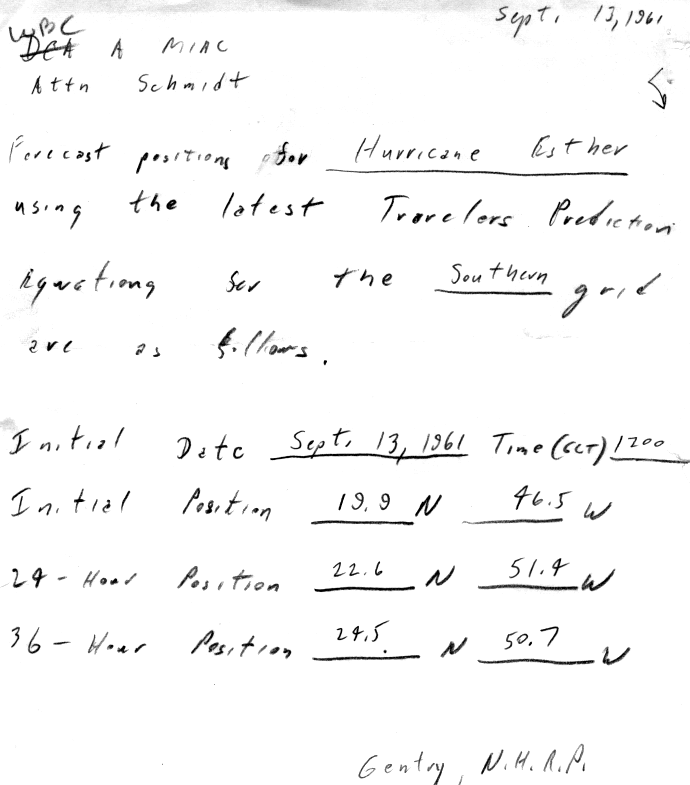 Sept. 13, 1961
WBC
DCA A MIAC
Attn Schmidt
Forecast positions for Hurricane Esther
using the latest Travelers Prediction
Equations for the Southern grid
are as follows.
Initial Date Sept. 13, 1961 Time (GCT) 1200
Initial Position 19.9 N 46.5 W
24-Hour Position 22.6 N 51.4 W
36-Hour Position 24.5 N 50.7 W
Gentry, N.H.R.P.